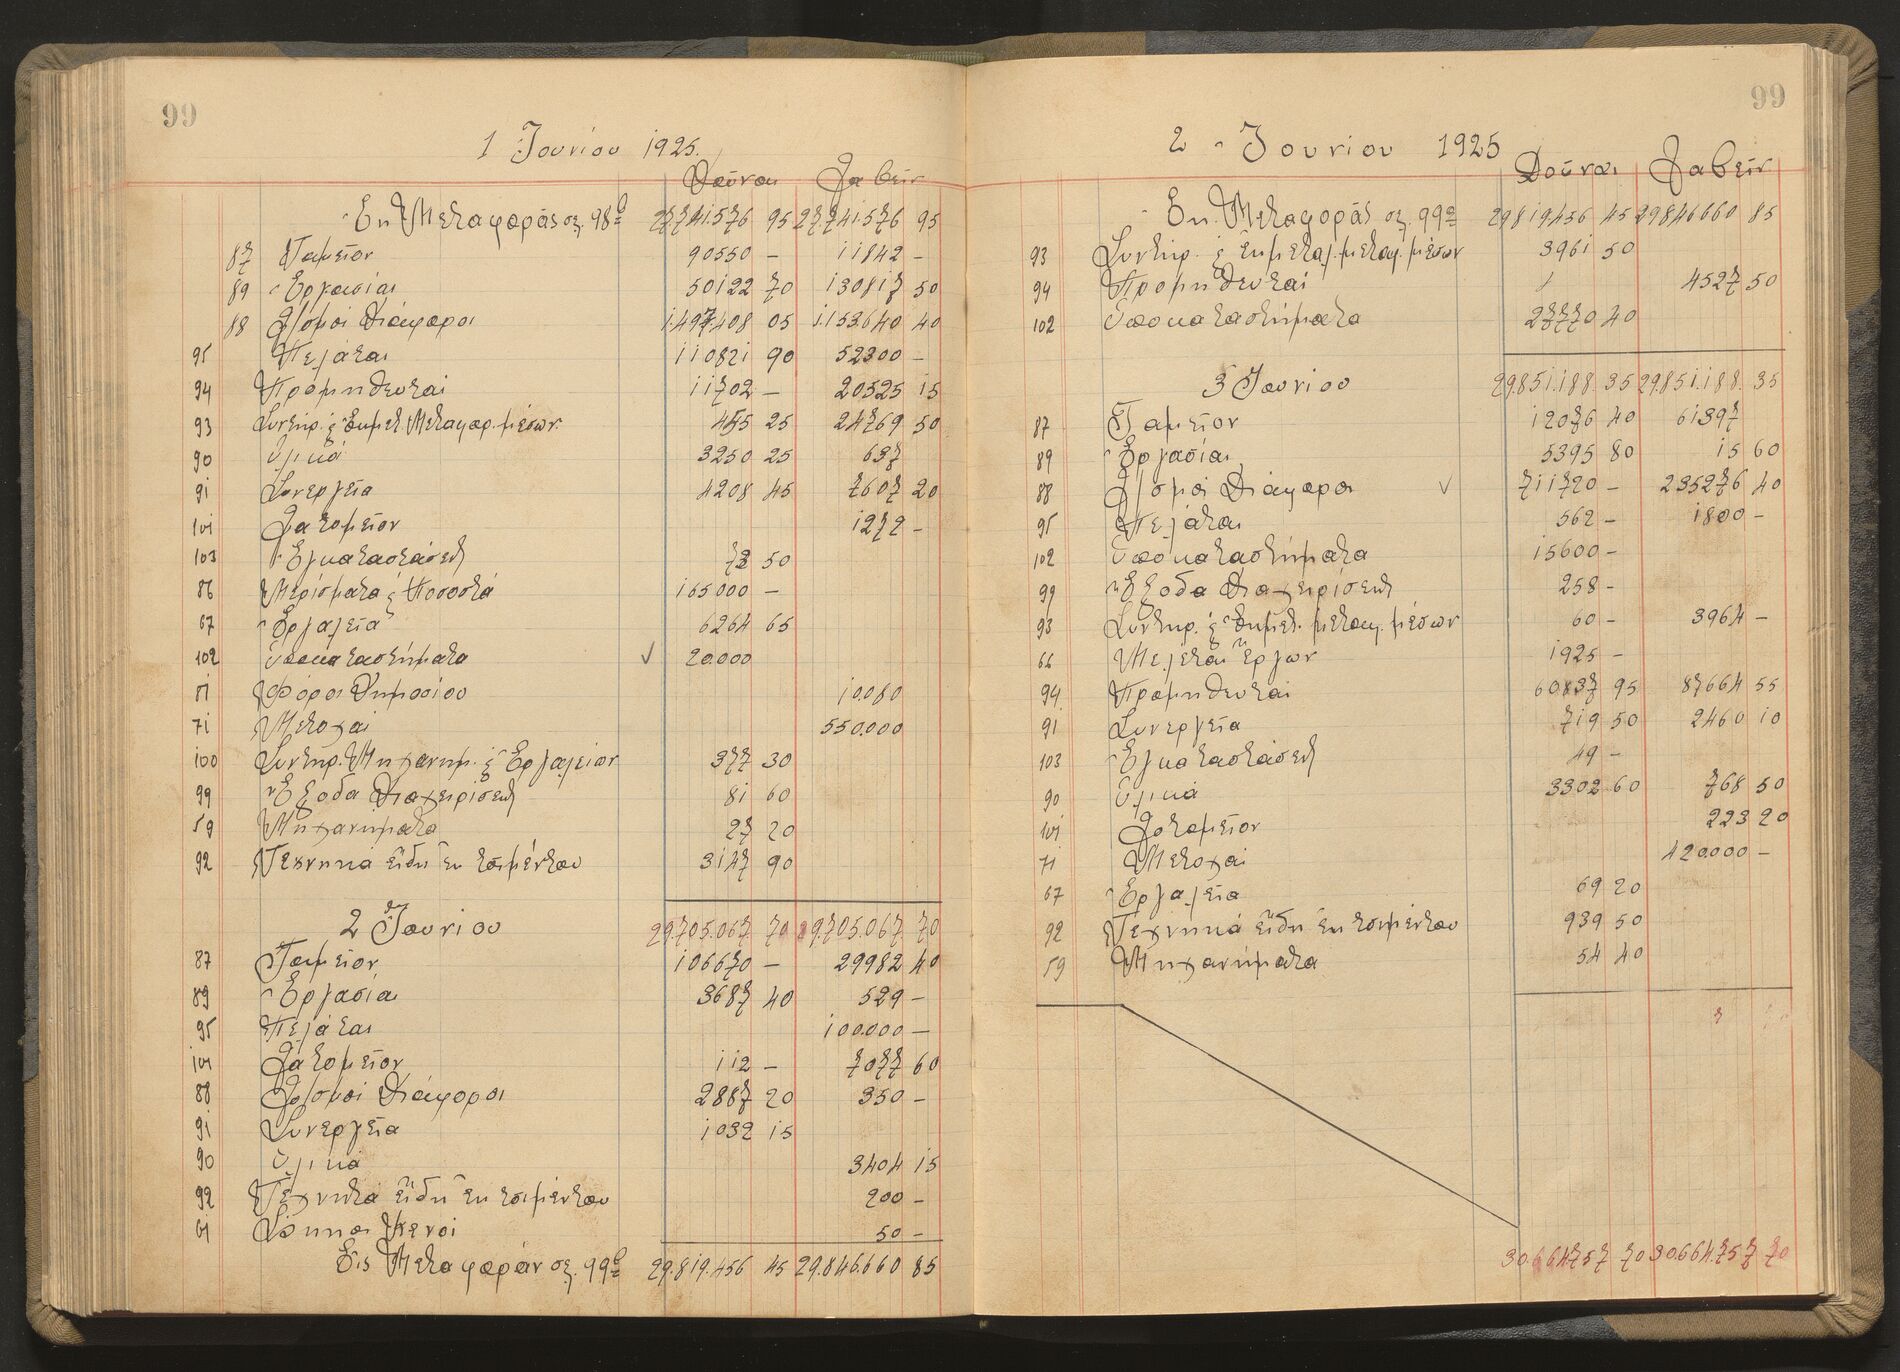 99
1 Ἰουνίου 1925.
Δοῦναι Λαβεῖν
Ἐκ Μεταφορᾶς σελ. 98β 27.741.576 95 27.741.576 95
87 Ταμεῖον 90550 — 11842 —
89 Ἐργασίαι 50122 70 130817 50
88 Λ/σμοί Διάφοροι 1.497.408 05 1.153.640 40
95 Πελάται 110821 90 52300 —
94 Προμηθευταί 11702 — 20525 15
93 Συντηρ. & Ἐκμετ. Μεταφορ. μέσων 455 25 24769 50
90 Ὑλικά 3250 25 637
91 Συνεργεῖα 4208 45 7607 20
101 Λατομεῖον 1272 —
103 Ἐγκαταστάσεις 72 50
86 Μερίσματα & Ποσοστά 165000 —
67 Ἐργαλεῖα 6264 65
102 Ὑποκαταστήματα √ 20.000
81 Φόροι Δημοσίου 10.080
71 Μετοχαί 550.000
100 Συντηρ. Μηχανημ. & Ἐργαλείων 377 30
99 Ἔξοδα Διαχειρίσεως 81 60
59 Μηχανήματα 27 20
92 Τεχνικά εἴδη ἐκ τσιμέντου 3147 90
2 Ἰουνίου 29.705.067 70 29.705.067 70
87 Ταμεῖον 106670 — 29982 40
89 Ἐργασίαι 3687 40 529 —
95 Πελάται 100.000 —
101 Λατομεῖον 112 — 7077 60
88 Λ/σμοί Διάφοροι 2887 20 350 —
91 Συνεργεῖα 1032 15
90 Ὑλικά 3404 15
92 Τεχνητά εἴδη ἐκ τσιμέντου 200 —
61 Σάκκοι Κενοί 50 —
Εἰς Μεταφοράν σελ. 99β 29.819.456 45 29.846.660 85
99
2 Ἰουνίου 1925
Δοῦναι Λαβεῖν
Ἐκ Μεταφορᾶς σελ. 99α 29819456 45 29846660 85
93 Συντηρ. & Ἐκμεταλ. μεταφ. μέσων 3961 50
94 Προμηθευταί 4527 50
102 Ὑποκαταστήματα 27770 40
3 Ἰουνίου 29.851.188 35 29.851.188 35
87 Ταμεῖον 12076 40 61397
89 Ἐργασίαι 5395 80 15 60
88 Λ/σμοί Διάφοροι √ 711720 — 235276 40
95 Πελάται 562 — 1800 —
102 Ὑποκαταστήματα 15600 —
99 Ἔξοδα Διαχειρίσεως 258 —
93 Συντηρ. & Ἐκμετ. μεταφ. μέσων 60 — 3964 —
66 Μελέται Ἔργων 1925 —
94 Προμηθευταί 60837 95 87664 55
91 Συνεργεῖα 719 50 2460 10
103 Ἐγκαταστάσεις 49 —
90 Ὑλικά 3302 60 768 50
101 Λατομεῖον 223 20
71 Μετοχαί 420.000 —
67 Ἐργαλεῖα 69 20
92 Τεχνικά εἴδη ἐκ τσιμέντου 939 50
59 Μηχανήματα 54 40
30.664.757 70 30.664.757 70